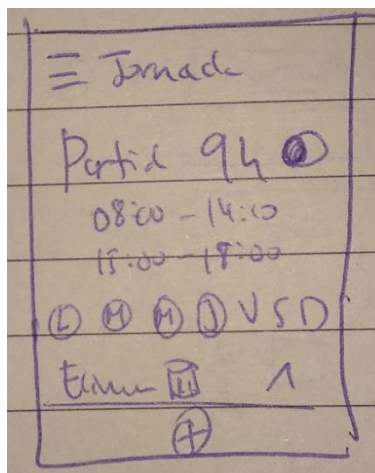 Jornada
Partid 9h
08:00 - 14:00
15:00 - 18:00
L M M J V S D